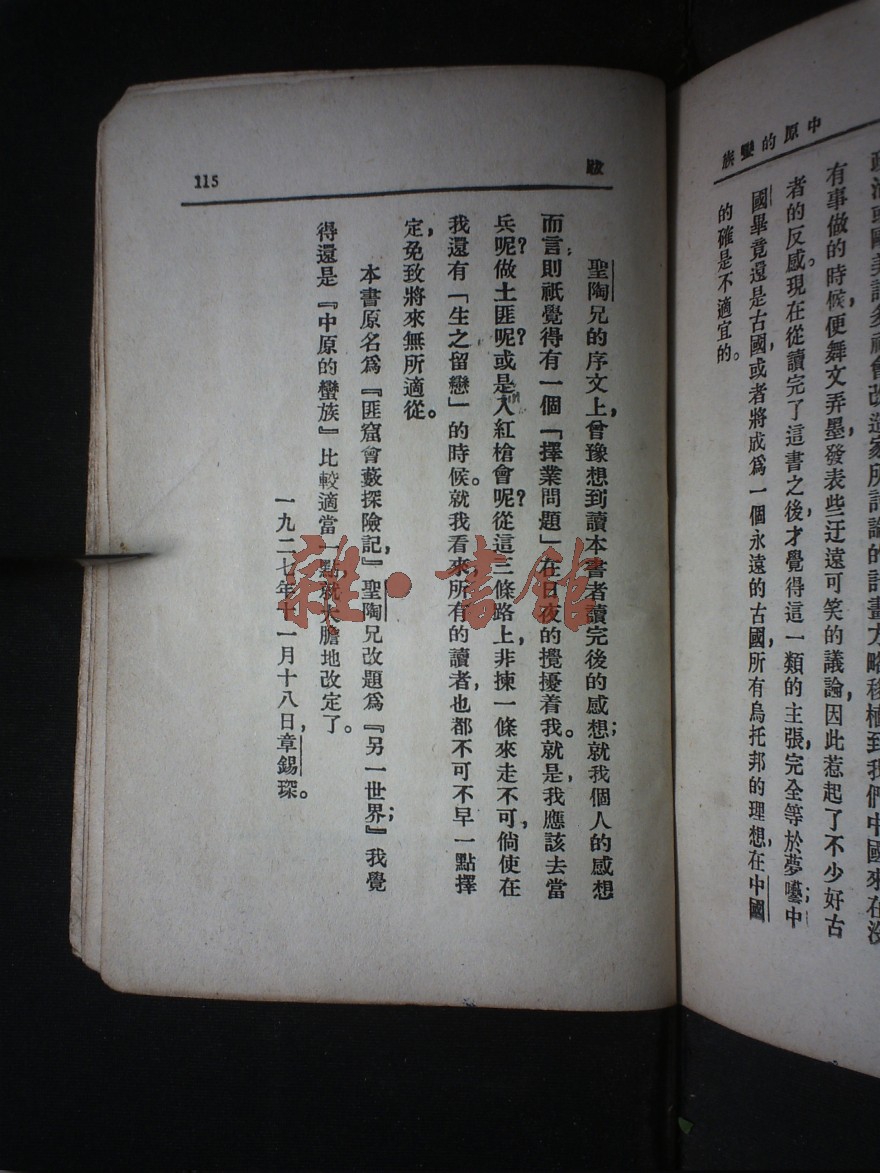 中原的蠻族
有事做的時候，便舞文弄墨，發表些迂遠可笑的議論，因此惹起了不少好古
者的反感。現在從讀完了這書之後，才覺得這一類的主張，完全等於夢囈；中
國畢竟還是古國，或者將成爲一個永遠的古國，所有烏托邦的理想，在中國
的確是不適宜的。
跋
115
聖陶兄的序文上，曾豫想到讀本書者讀完後的感想；就我個人的感想
而言，則祇覺得有一個「擇業問題」在日夜的攪擾着我。就是，我應該去當
兵呢？做土匪呢？或是入紅槍會呢？從這三條路上，非揀一條來走不可，倘使在
我還有「生之留戀」的時候。就我看來，所有的讀者，也都不可不早一點擇
定，免致將來無所適從。
本書原名爲『匪窟會藪探險記』，聖陶兄改題爲『另一世界』；我覺
得還是『中原的蠻族』比較適當一點，就大膽地改定了。
一九二七年十一月十八日，章錫琛。
雜·書館